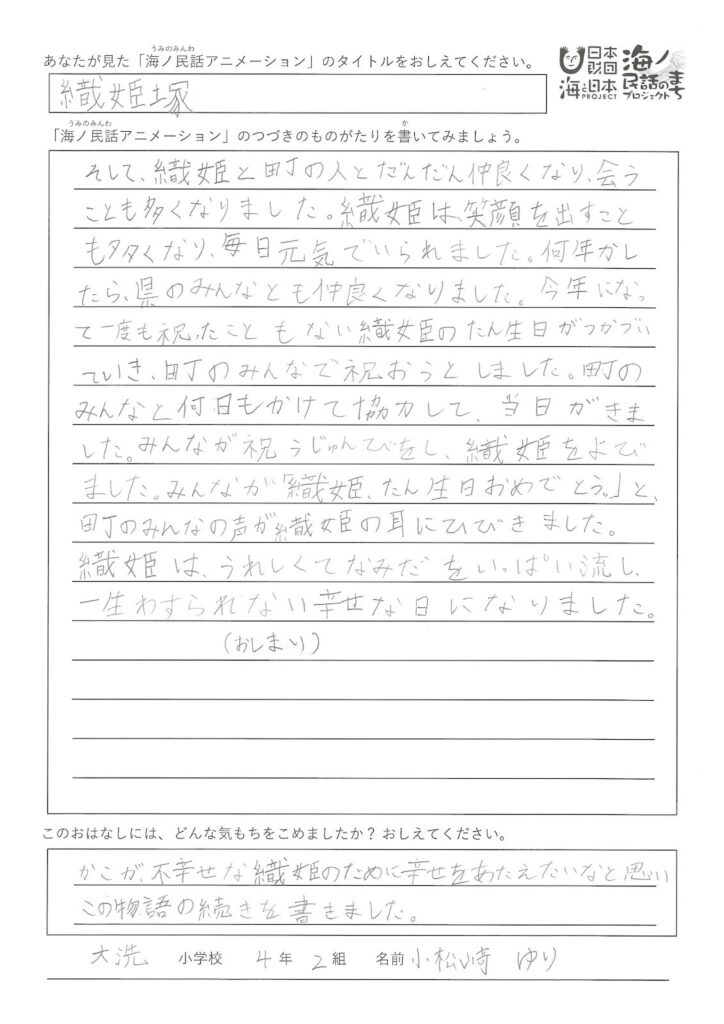 うみのみんわ
あなたが見た「海ノ民話アニメーション」のタイトルをおしえてください。
日本財団
海と日本PROJECT
海ノ民話のまちプロジェクト
織姫塚
うみのみんわ
か
「海ノ民話アニメーション」のつづきのものがたりを書いてみましょう。
そして、織姫と町の人とだんだん仲良くなり、会う
ことも多くなりました。織姫は、笑顔を出すこと
も多くなり、毎日元気でいられました。何年かし
たら、県のみんなとも仲良くなりました。今年になっ
て一度も祝ったこともない織姫のたん生日がつかづい
ていき、町のみんなで祝おうとしました。町の
みんなと何日もかけて協力して、当日がきま
した。みんなが祝うじゅんびをし、織姫をよび
ました。みんなが「織姫、たん生日おめでとう。」と、
町のみんなの声が織姫の耳にひびきました。
織姫は、うれしくてなみだをいっぱい流し、
一生わすられない幸せな日になりました。
(おしまい)
このおはなしには、どんな気もちをこめましたか？おしえてください。
かこが、不幸せな織姫のために幸せをあたえたいなと思い
この物語の続きを書きました。
大洗 小学校 4年 2組 名前 小松﨑 ゆり